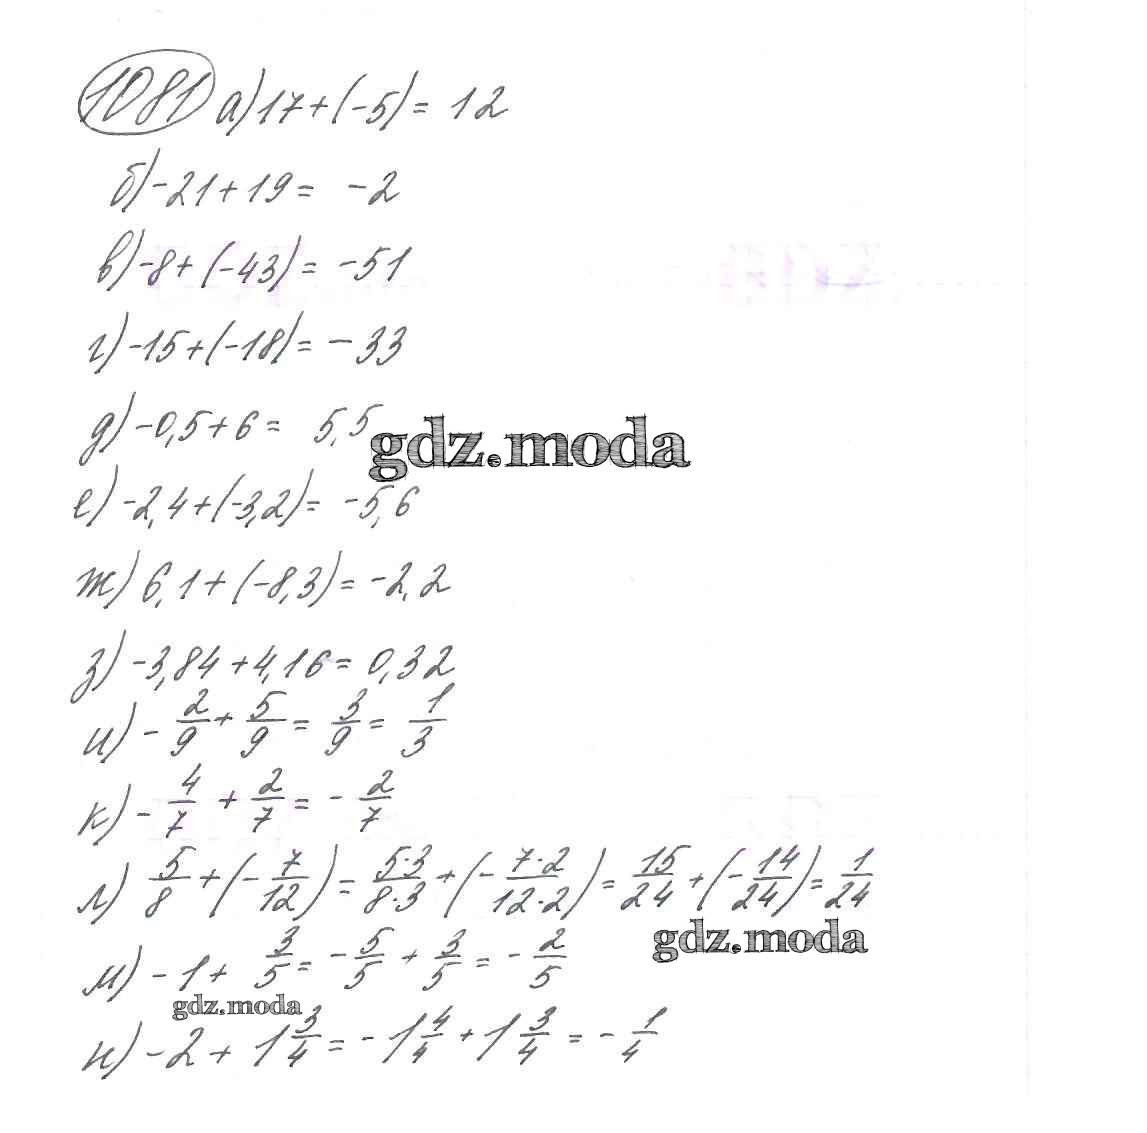 1081 а) 17 + (-5) = 12
б) -21 + 19 = -2
в) -8 + (-43) = -51
г) -15 + (-18) = -33
д) -0,5 + 6 = 5,5
gdz.moda
е) -2,4 + (-3,2) = -5,6
ж) 6,1 + (-8,3) = -2,2
з) -3,84 + 4,16 = 0,32
и) - 2/9 + 5/9 = 3/9 = 1/3
к) - 4/7 + 2/7 = - 2/7
л) 5/8 + (- 7/12) = 5·3/8·3 + (- 7·2/12·2) = 15/24 + (- 14/24) = 1/24
gdz.moda
м) -1 + 3/5 = - 5/5 + 3/5 = - 2/5
gdz.moda
н) -2 + 1 3/4 = -1 4/4 + 1 3/4 = - 1/4